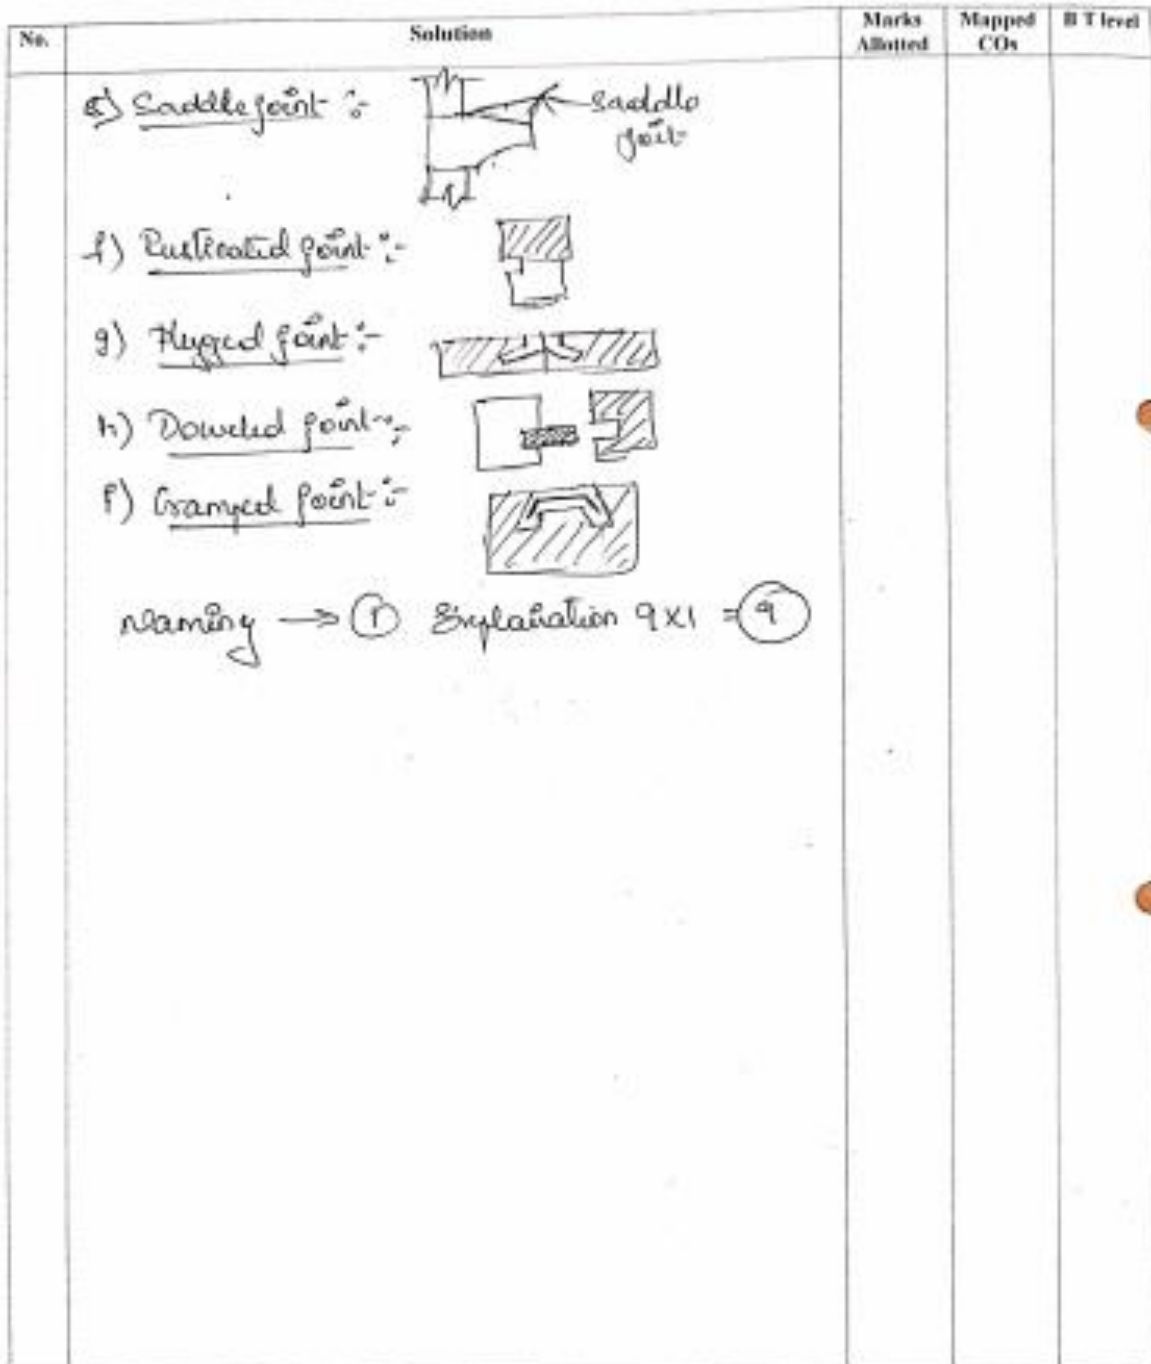 No. Solution Marks Allotted Mapped COs B T level
e) Saddle joint :-
saddle
joint
f) Rusticated joint :-
g) Plugged joint :-
h) Doweled joint :-
i) Cramped joint :-
Naming → 1 Explanation 9x1 = 9